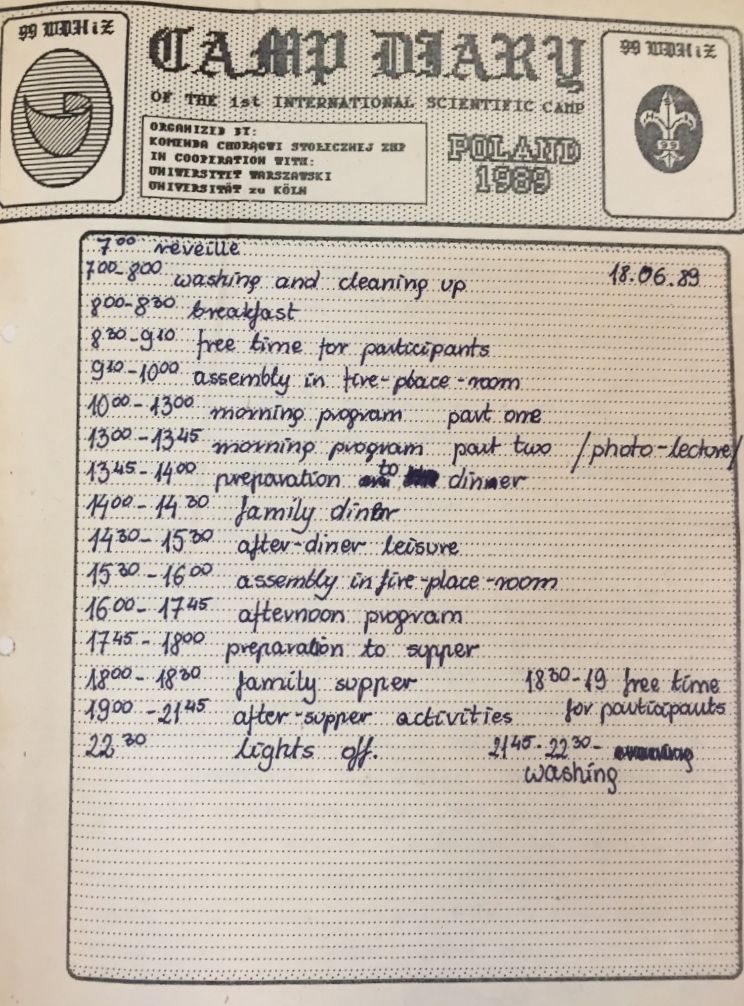 99 WDHiZ
CAMP DIARY
OF THE 1st INTERNATIONAL SCIENTIFIC CAMP
ORGANIZED BY:
KOMENDA CHORĄGWI STOŁECZNEJ ZHP
IN COOPERATION WITH:
UNIWERSYTET WARSZAWSKI
UNIVERSITÄT zu KÖLN
POLAND
1989
99 WDHiZ
99
7⁰⁰ réveille
18.06.89
7⁰⁰-8⁰⁰ washing and cleaning up
8⁰⁰-8³⁰ breakfast
8³⁰-9¹⁰ free time for participants
9¹⁰-10⁰⁰ assembly in fire-place-room
10⁰⁰-13⁰⁰ morning program part one
13⁰⁰-13⁴⁵ morning program part two /photo-lecture/
13⁴⁵-14⁰⁰ preparation to dinner
14⁰⁰-14³⁰ family diner
14³⁰-15³⁰ after-diner leisure
15³⁰-16⁰⁰ assembly in fire-place-room
16⁰⁰-17⁴⁵ afternoon program
17⁴⁵-18⁰⁰ preparation to supper
18⁰⁰-18³⁰ family supper
18³⁰-19 free time
for participants
19⁰⁰-21⁴⁵ after-supper activities
22³⁰ lights off.
21⁴⁵-22³⁰-
washing